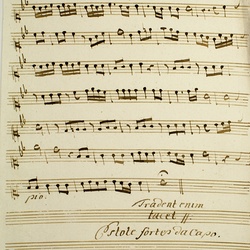 pio.
Tradent enim
tacet //.
Estote fortes da Capo.